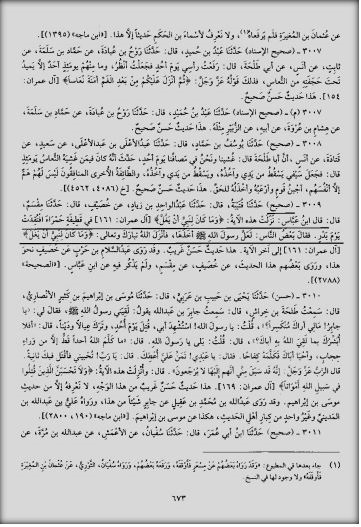 عن عثمانَ بن المُغيرةِ فلم يَرفَعاهُ(١)، ولا نَعرِفُ لأسماءَ بن الحَكَمِ حديثاً إلَّا هذا. [«ابن ماجه» (١٣٩٥)].
٣٠٠٧ ـ (صحيح الإسناد) حَدَّثَنَا عَبْدُ بنُ حُميدٍ، قال: حَدَّثَنَا رَوْحُ بن عُبَادَةَ، عن حَمَّادِ بن سَلَمَةَ، عن
ثابتٍ، عن أنَسٍ، عن أبي طَلْحَةَ، قال: رَفَعتُ رأسِي يَومَ أُحُدٍ فَجَعَلْتُ أنظُرُ، وما مِنْهُمْ يَومَئِذٍ أحَدٌ إلَّا يَمِيدُ
تَحتَ حَجَفَتِهِ من النُّعاسِ، فذلك قَوْلُهُ عزَّ وَجَلَّ: ﴿ثُمَّ أَنْزَلَ عَلَيْكُمْ مِنْ بَعْدِ الْغَمِّ أَمَنَةً نُعَاساً﴾ [آل عمران:
١٥٤]. هَذَا حَدِيثٌ حسنٌ صحيحٌ.
٣٠٠٧ (م) ـ (صحيح الإسناد) حَدَّثَنَا عَبْدُ بنُ حُمَيْدٍ، قال: حَدَّثَنَا رَوْحُ بن عُبَادَةَ، عن حَمَّادِ بن سَلَمَةَ،
عن هِشامِ بن عُرْوَةَ، عن أبيهِ، عن الزُّبَيْرِ مِثْلَهُ. هَذَا حَدِيثٌ حسنٌ صحيحٌ.
٣٠٠٨ ـ (صحيح) حَدَّثَنَا يُوسُفُ بن حَمَّادٍ، قال: حَدَّثَنَا عَبْدُالأعْلَى بن عَبدالأعْلَى، عن سَعِيدٍ، عن
قَتَادَةَ، عن أنَسٍ، أنَّ أبا طَلْحَةَ قال: غُشِينا ونَحْنُ في مَصافِّنا يَومَ أُحُدٍ، حَدَّثَ أنَّهُ كانَ فيمَن غَشِيَهُ النُّعاسُ يَومَئِذٍ
قال: فجَعَلَ سَيْفِي يَسْقُطُ من يَدِي وآخُذُهُ، ويَسقُطُ من يَدي وآخُذُهُ، والطَّائِفَةُ الأُخرى المنافِقونَ لَيسَ لَهُمْ هَمٌّ
إلَّا أنْفُسَهُم، أجْبَنُ قَومٍ وأرْعَبُهُ وأخْذَلُهُ للحَقِّ. هَذَا حَدِيثٌ حسنٌ صحيحٌ. [خ (٤٠٨٦ و ٤٥٦٢)].
٣٠٠٩ ـ (صحيح) حَدَّثَنَا قُتَيْبَةُ، قال: حَدَّثَنَا عَبْدُالواحدِ بن زِيَادٍ، عن خُصَيْفٍ، قال: حَدَّثَنَا مِقْسَمٌ،
قال: قال ابنُ عبَّاسٍ: نزَلَتْ هذه الآيةُ: ﴿وَمَا كَانَ لِنَبِيٍّ أَنْ يَغُلَّ﴾ [آل عمران: ١٦١] في قَطِيفَةٍ حَمْراءَ افتُقِدَتْ
يَومَ بَدْرٍ. فقالَ بَعضُ النَّاسِ: لَعلَّ رسولَ اللَّهِ ﷺ أخَذَها، فأنْزَلَ اللَّهُ تَبارَكَ وتعالى: ﴿وَمَا كَانَ لِنَبِيٍّ أَنْ يَغُلَّ﴾
[آل عمران: ١٦١] إلى آخِرِ الآيةِ. هَذَا حَدِيثٌ حَسَنٌ غَرِيبٌ. وقد رَوَى عَبدُالسلامِ بن حَربٍ عن خُصَيفٍ نحوَ
هذا، ورَوَى بَعْضُهم هذا الحَديثَ، عن خُصَيفٍ، عن مِقْسَمٍ، ولم يَذكُر فيهِ عن ابنِ عبَّاسٍ. [«الصحيحة»
(٢٧٨٨)].
٣٠١٠ ـ (حسن) حَدَّثَنَا يَحْيَى بن حَبيبِ بن عَرَبِيٍّ، قال: حَدَّثَنَا مُوسَى بن إبْرَاهِيمَ بن كَثِيرٍ الأنْصَارِيُّ،
قال: سَمِعْتُ طَلْحَةَ بن خِراشٍ، قال: سَمِعتُ جابِرَ بن عَبداللهِ يقولُ: لَقِيَنِي رسولُ اللَّهِ ﷺ، فقالَ لي: «يا
جابِرُ! مَالي أراكَ مُنْكَسِراً؟»، قلتُ: يا رسولَ الله! استُشْهِدَ أبي، قُتِلَ يَوْمَ أُحُدٍ، وتَرَكَ عِيالاً ودَيْناً، قال: «أفلا
أُبَشِّرُكَ بما لَقِيَ اللَّهُ بهِ أباكَ؟»، قال: قُلْتُ: بَلَى يا رسولَ الله. قال: «ما كَلَّمَ اللَّهُ أحَداً قَطُّ إلَّا من وَرَاءِ
حِجابٍ، وأحْيَا أباكَ فَكَلَّمَهُ كِفَاحًا. فقالَ: يا عَبْدِي! تَمَنَّ عَلَيَّ أُعْطِكَ. قال: يَا رَبِّ! تُحْيِينِي فأُقْتَلَ فيكَ ثانيةً.
قال الرَّبُّ عزَّ وَجَلَّ: إنَّهُ قد سَبَقَ مِنِّي أنَّهم إلَيْهَا لا يُرْجَعونَ». قال: وأُنْزِلَتْ هذه الآيةُ: ﴿وَلَا تَحْسَبَنَّ الَّذِينَ قُتِلُوا
في سَبيلِ اللهِ أمْوَاتاً﴾ [آل عمران: ١٦٩]. هَذَا حَدِيثٌ حَسَنٌ غَرِيبٌ من هذا الوَجْهِ، لا نَعرِفُهُ إلَّا من حديثِ
موسَى بن إبْراهيمَ. وقد رَوَى عَبْدُالله بن مُحَمَّدِ بن عَقِيلٍ عن جابرٍ شَيْئاً من هذا، ورَوَاهُ عَلِيُّ بن عَبدالله بن
المَدينيِّ وغَيْرُ واحدٍ من كِبارِ أهْلِ الحَديثِ، هَكَذا عن موسَى بن إبْراهيمَ. [«ابن ماجه» (١٩٠ و ٢٨٠٠)].
٣٠١١ ـ (صحيح) حَدَّثَنَا ابنُ أبي عُمَرَ، قال: حَدَّثَنَا سُفْيَانُ، عن الأعْمَشِ، عن عبدِالله بن مُرَّةَ، عن
(١) جاء بعدها في المطبوع: «وَقَدْ رَوَاهُ بَعْضُهُمْ عَنْ مِسْعَرٍ فَأَوْقَفَهُ، وَرَفَعَهُ بَعْضُهُمْ، وَرَوَاهُ سُفْيَانُ، الثَّوْرِيُّ، عَنْ عُثْمَانَ بْنِ الْمُغِيرَةِ
فَأَوْقَفَهُ» ولا وجود لها في النسخ.
٦٧٣